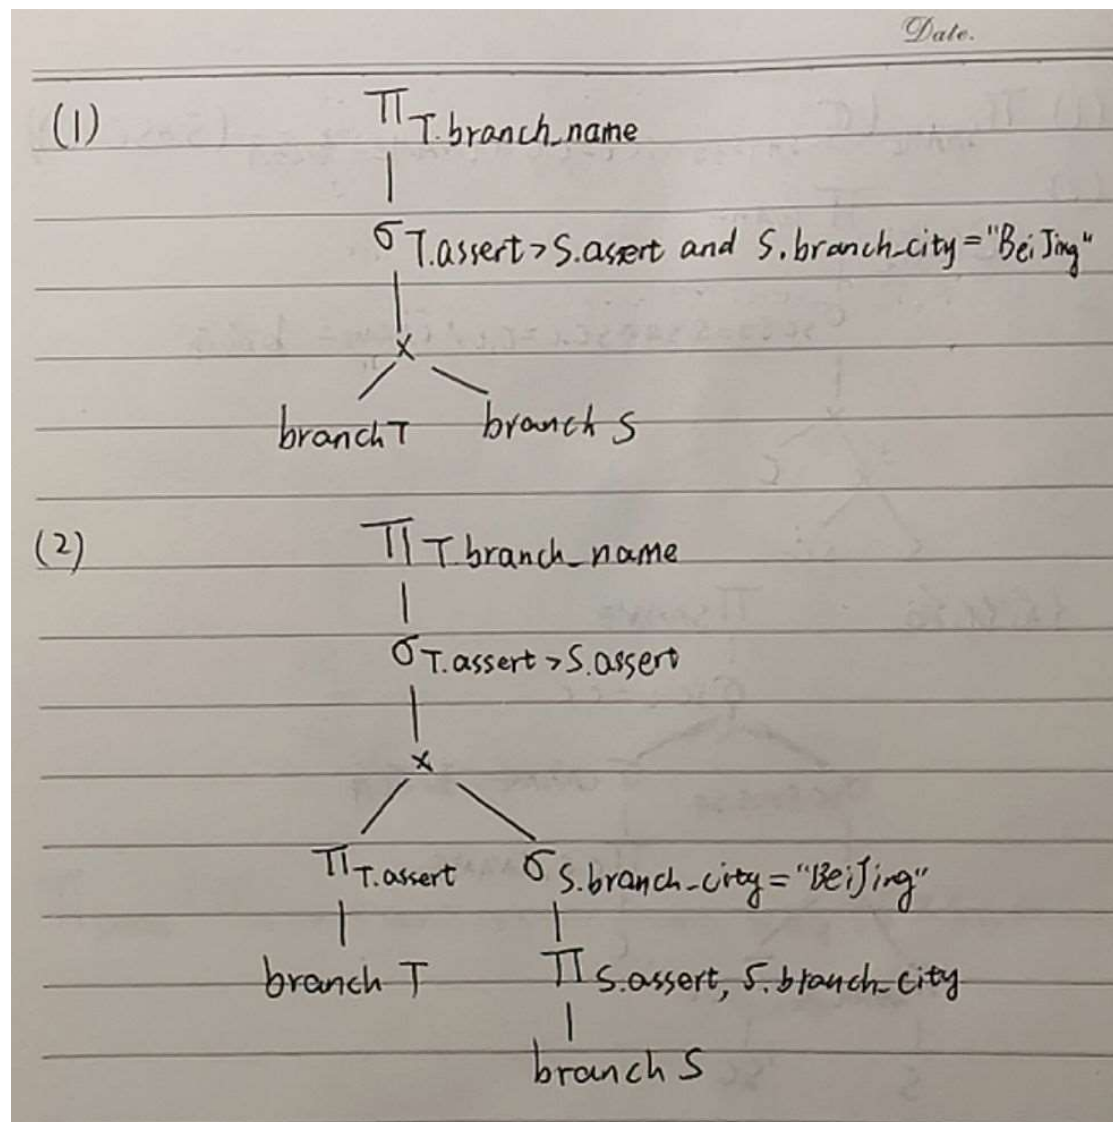 Date.
(1) Π T.branch_name
σ T.assert > S.assert and S.branch_city = "BeiJing"
×
branch T branch S
(2) Π T.branch_name
σ T.assert > S.assert
×
Π T.assert σ S.branch_city = "BeiJing"
branch T Π S.assert, S.branch_city
branch S